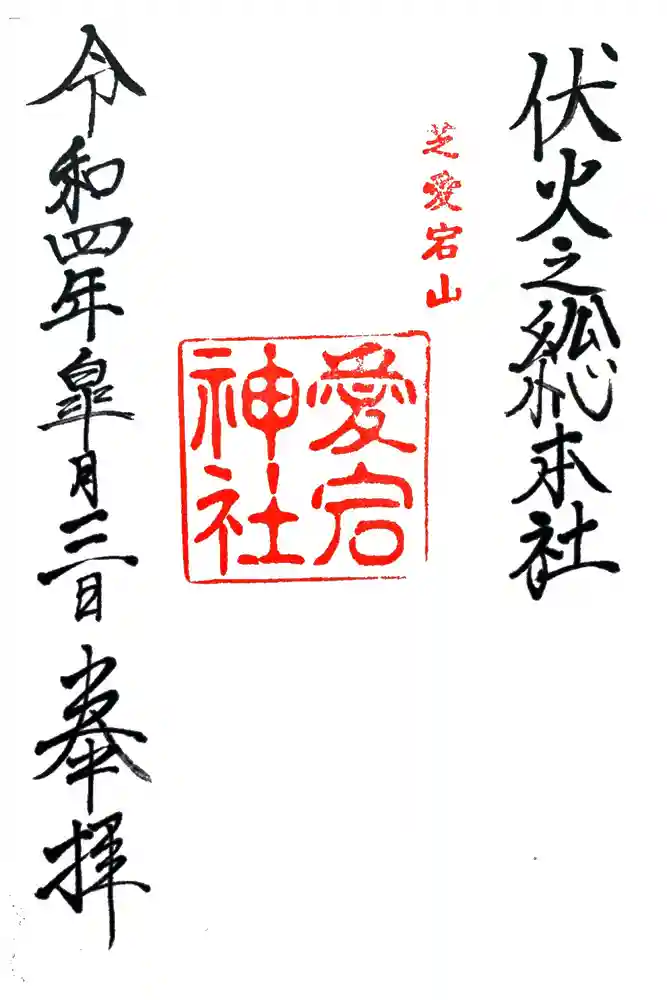 伏火之總本社
芝愛宕山
愛宕
神社
令和四年皐月三日
奉拝